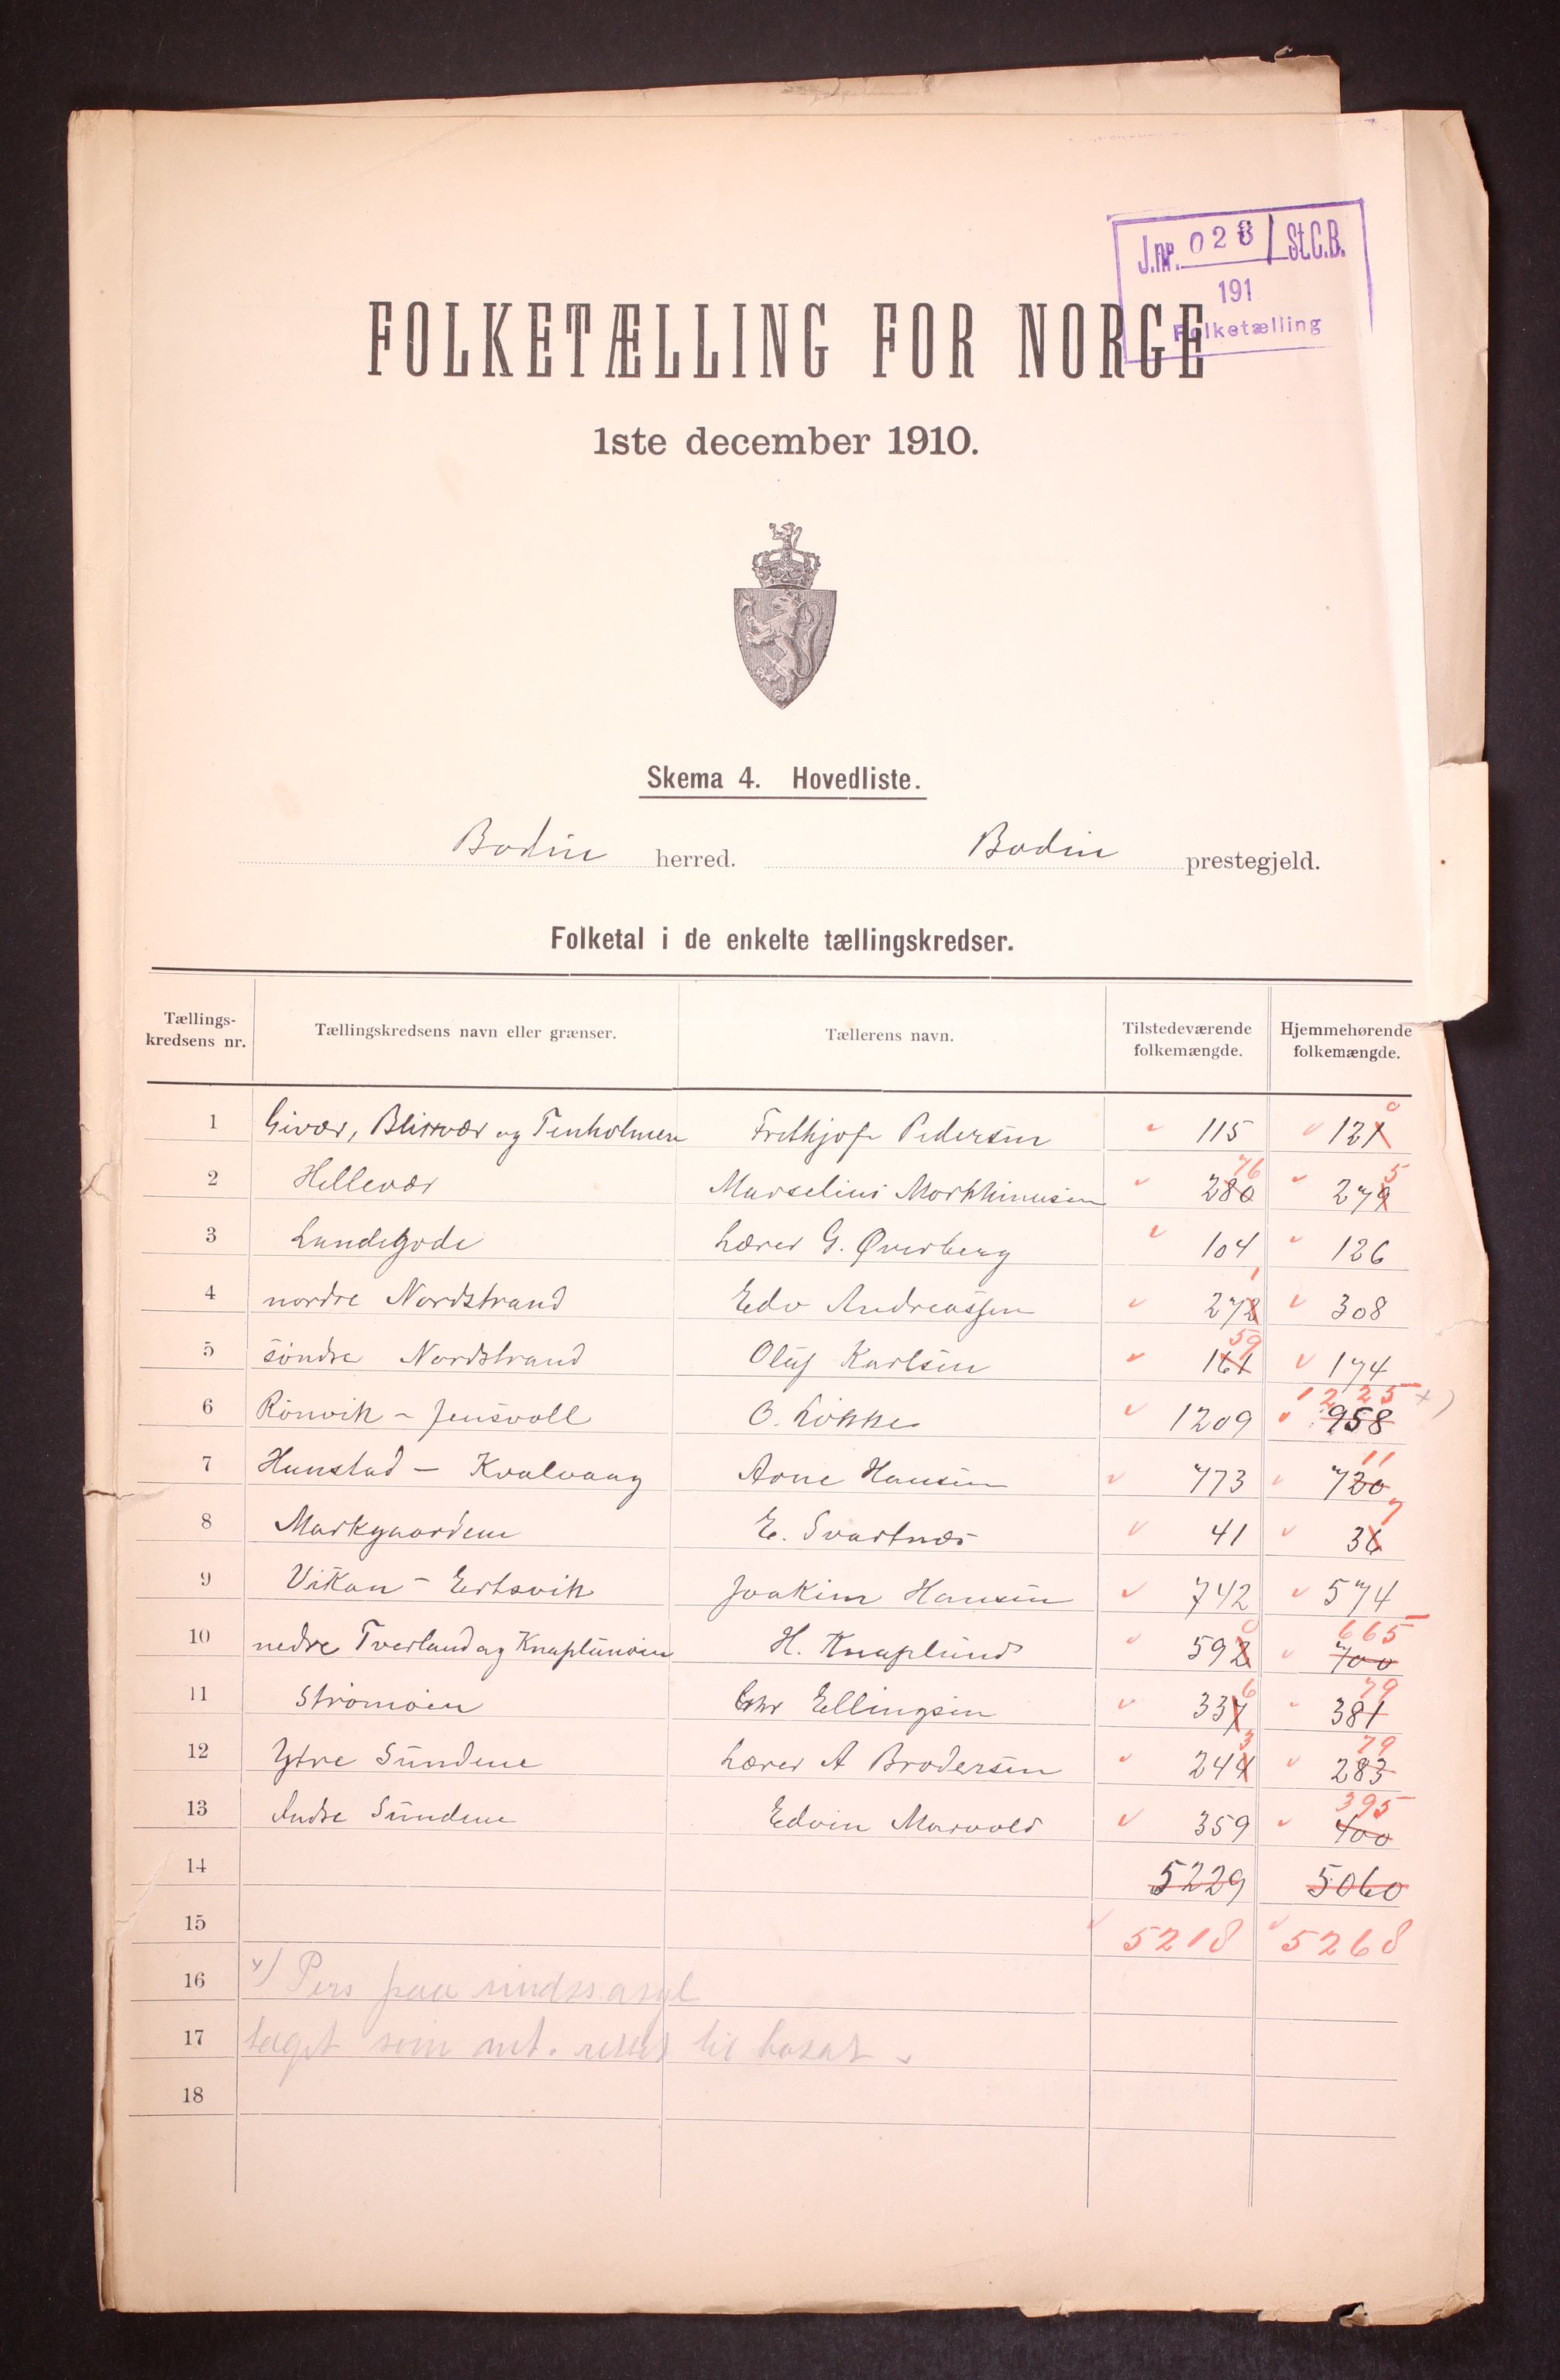 J.nr. 028 / St.C.B.
191
Folketælling
FOLKETÆLLING FOR NORGE
1ste december 1910.
Skema 4. Hovedliste.
Bodin herred. Bodin prestegjeld.
Folketal i de enkelte tællingskredser.
Tællings-kredsens nr. Tællingskredsens navn eller grænser. Tællerens navn. Tilstedeværende folkemængde. Hjemmehørende folkemængde.
1 Givær, Blixvær og Tenholmen Frithjof Pedersen 115 121 0
2 Hellevær Marselius Morthinusen 280 76 279 5
3 Landegode Lærer G. Øverberg 104 126
4 nordre Nordstrand Edv Andreassen 272 1 308
5 söndre Nordstrand Oluf Karlsen 161 59 174
6 Rönvik - Jensvoll O. Lökke 1209 958 1225 x)
7 Hunstad - Kvalvaag Arne Hansen 773 720 11
8 Markgaardene E. Svartnæs 41 36 7
9 Vikan - Ertsvik Joakim Hansen 742 574
10 nedre Tverland og Knaplünöien H. Knaplünd 592 0 700 665
11 Strömöien Chr Ellingsen 337 6 381 79
12 Ytre Sündene Lærer A Brodersen 244 3 283 79
13 Indre Sündene Edvin Marvold 359 400 395
14 5229 5060
15 5218 5268
16 x) Pers paa sindss.asyl
17 taget som mt. til bosat
18